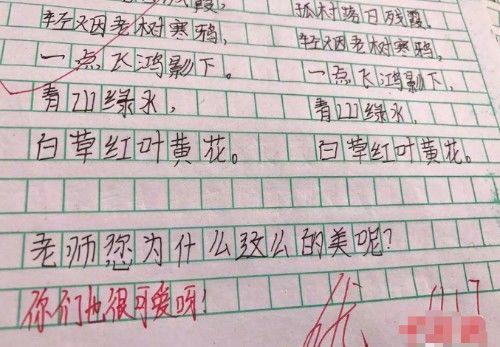 残霞，
孤村落日残霞，
轻烟老树寒鸦，
轻烟老树寒鸦，
一点飞鸿影下。
一点飞鸿影下，
青川绿水，
青川绿水，
白草红叶黄花。
白草红叶黄花。
老师您为什么这么的美呢？
你们也很可爱呀！
优